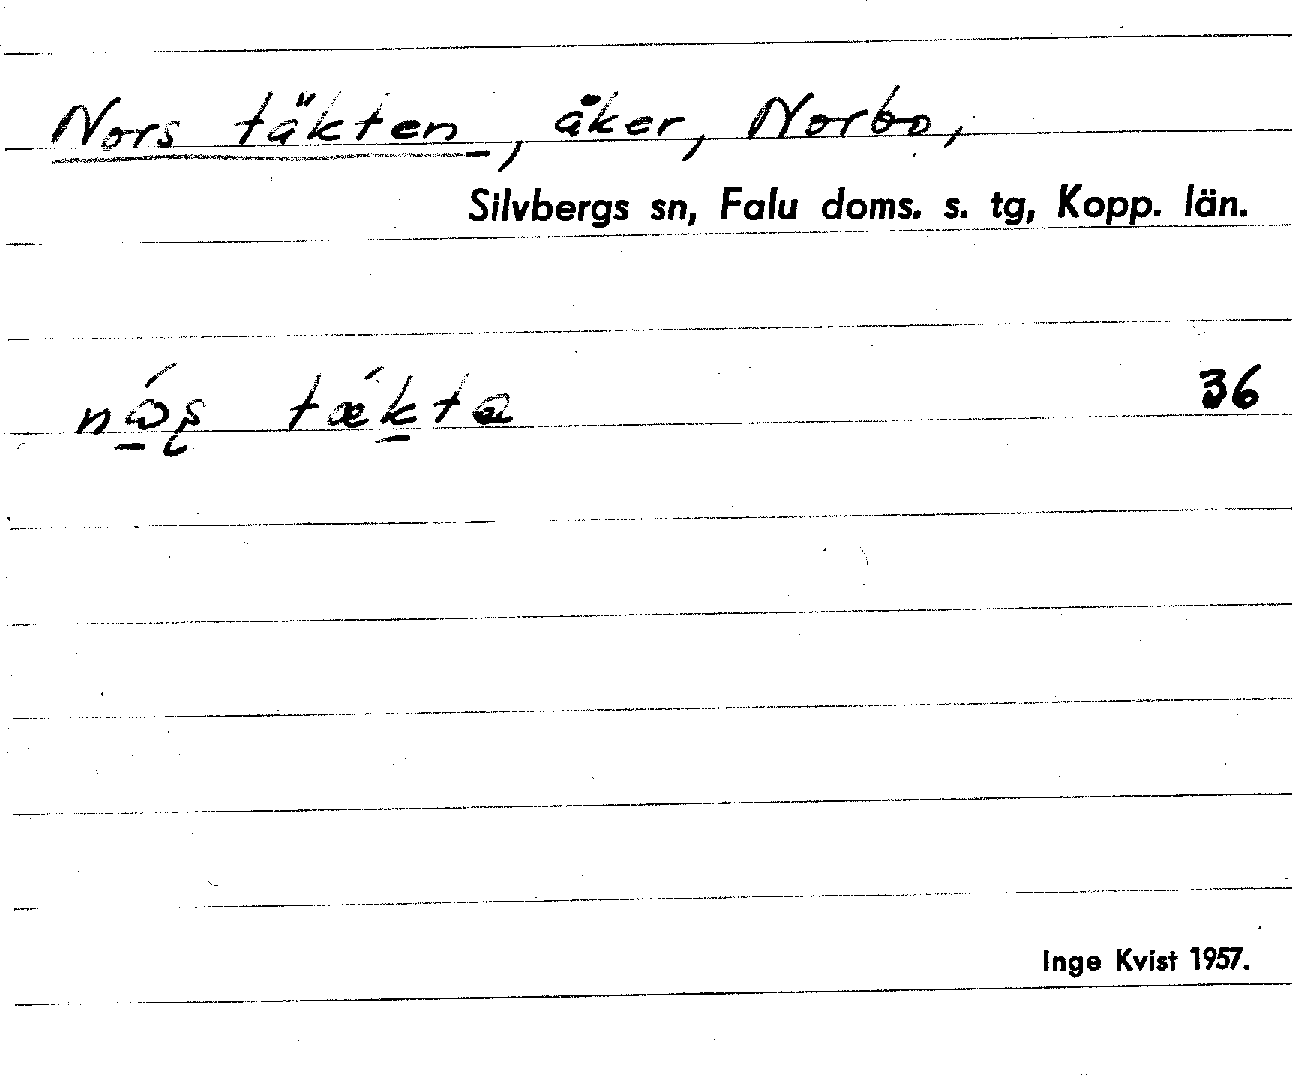 Nors täkten, åker, Norbo,
Silvbergs sn, Falu doms. s. tg, Kopp. län.
36
Inge Kvist 1957.